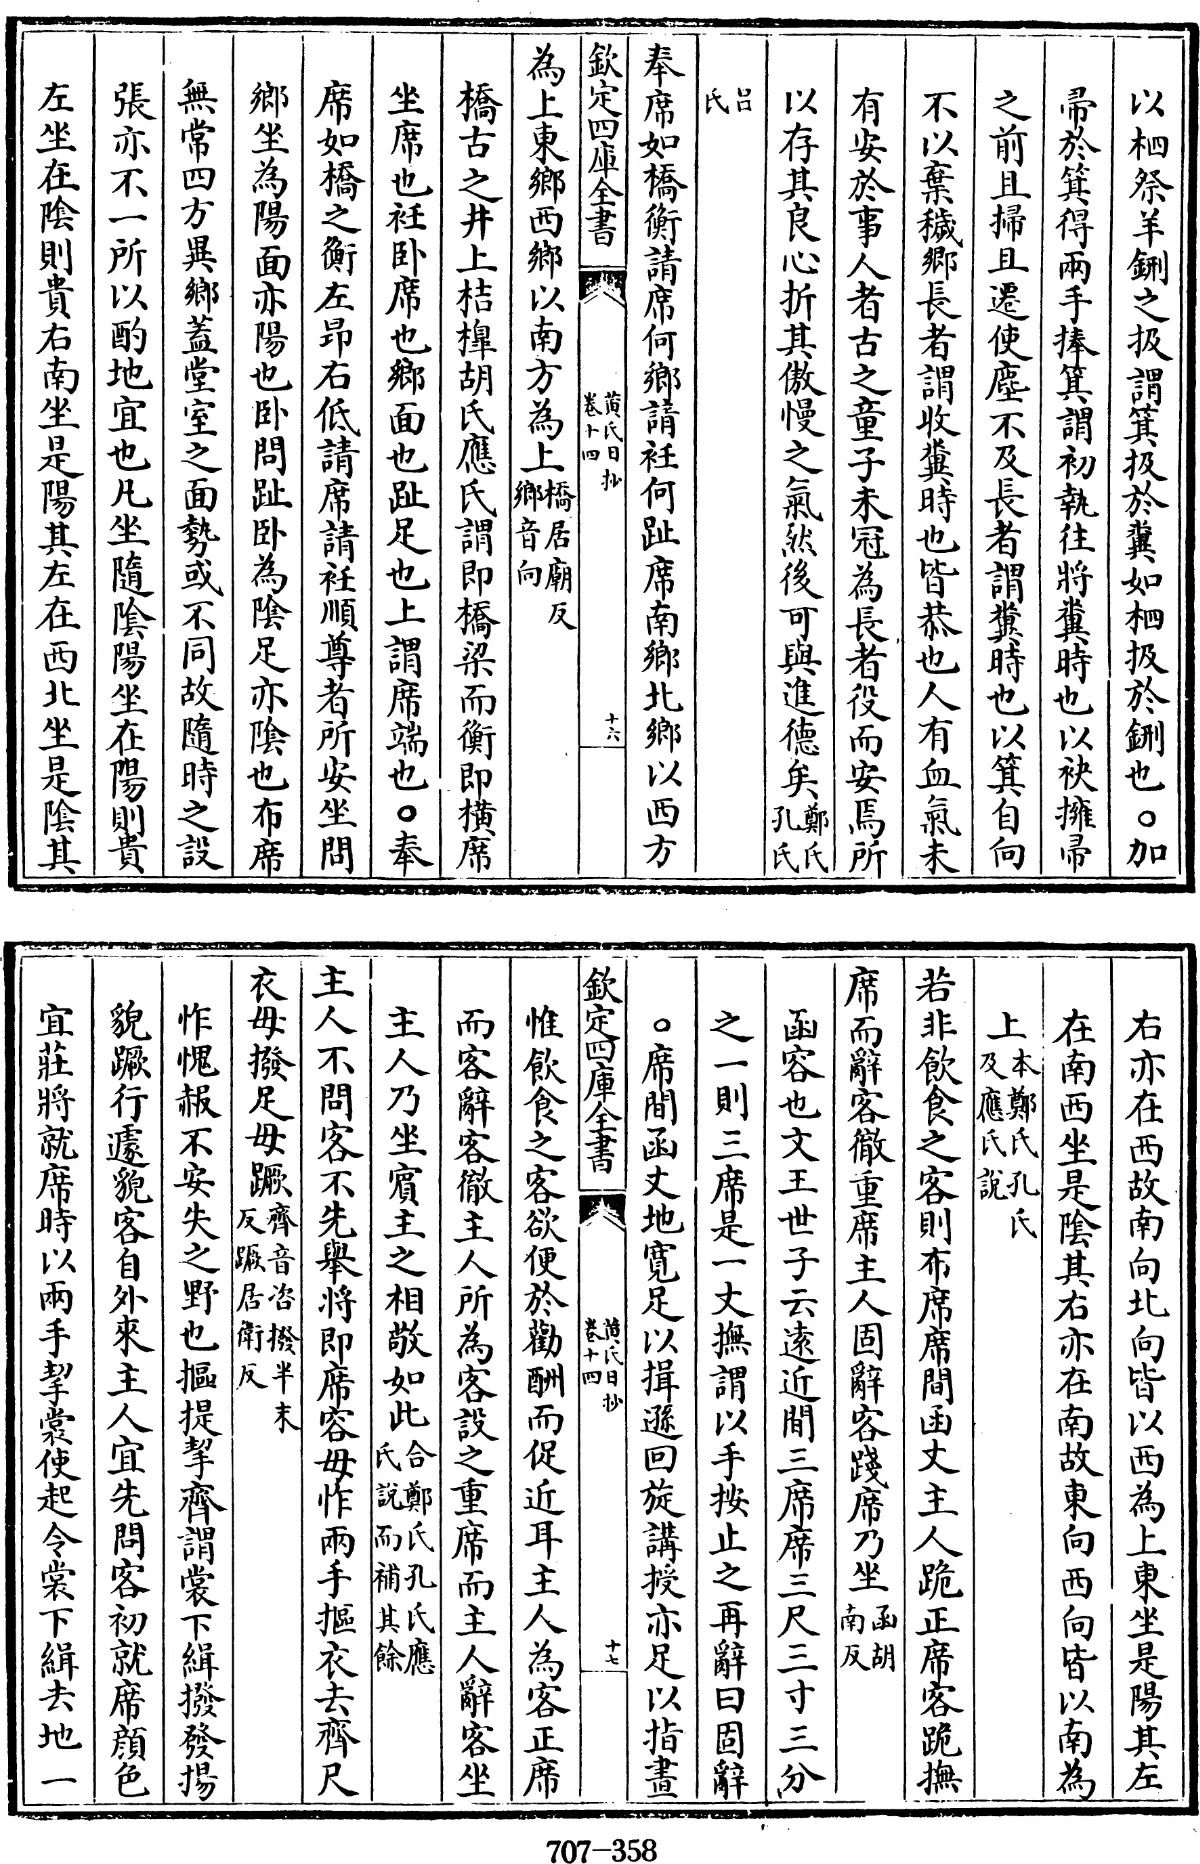 以柶祭羊鉶之扱謂箕扱於糞如柶扱於鉶也○加
帚於箕得兩手捧箕謂初執往將糞時也以袂擁帚
之前且掃且遷使塵不及長者謂糞時也以箕自向
不以棄穢鄉長者謂收糞時也皆恭也人有血氣未
有安於事人者古之童子未冠為長者役而安焉所
以存其良心折其傲慢之氣然後可與進德矣鄭氏孔氏
呂氏
奉席如橋衡請席何鄉請衽何趾席南鄉北鄉以西方
欽定四庫全書
黄氏日抄
卷十四
十六
為上東鄉西鄉以南方為上橋居廟反鄉音向
橋古之井上桔槔胡氏應氏謂即橋梁而衡即橫席
坐席也衽卧席也鄉面也趾足也上謂席端也○奉
席如橋之衡左昂右低請席請衽順尊者所安坐問
鄉坐為陽面亦陽也卧問趾卧為陰足亦陰也布席
無常四方異鄉蓋堂室之面勢或不同故隨時之設
張亦不一所以酌地宜也凡坐隨陰陽坐在陽則貴
左坐在陰則貴右南坐是陽其左在西北坐是陰其
右亦在西故南向北向皆以西為上東坐是陽其左
在南西坐是陰其右亦在南故東向西向皆以南為
上本鄭氏孔氏及應氏說
若非飲食之客則布席席間函丈主人跪正席客跪撫
席而辭客徹重席主人固辭客踐席乃坐函胡南反
函容也文王世子云遠近間三席席三尺三寸三分
之一則三席是一丈撫謂以手按止之再辭曰固辭
○席間函丈地寬足以揖遜回旋講授亦足以指畫
欽定四庫全書
黄氏日抄
卷十四
十七
惟飲食之客欲便於勸酬而促近耳主人為客正席
而客辭客徹主人所為客設之重席而主人辭客坐
主人乃坐賓主之相敬如此合鄭氏孔氏應氏說而補其餘
主人不問客不先舉將即席容毋怍兩手摳衣去齊尺
衣毋撥足毋蹶齊音咨撥半末反蹶居衛反
怍愧赧不安失之野也摳提挈齊謂裳下緝撥發揚
貌蹶行遽貌客自外來主人宜先問客初就席顔色
宜莊將就席時以兩手挈裳使起令裳下緝去地一
707-358